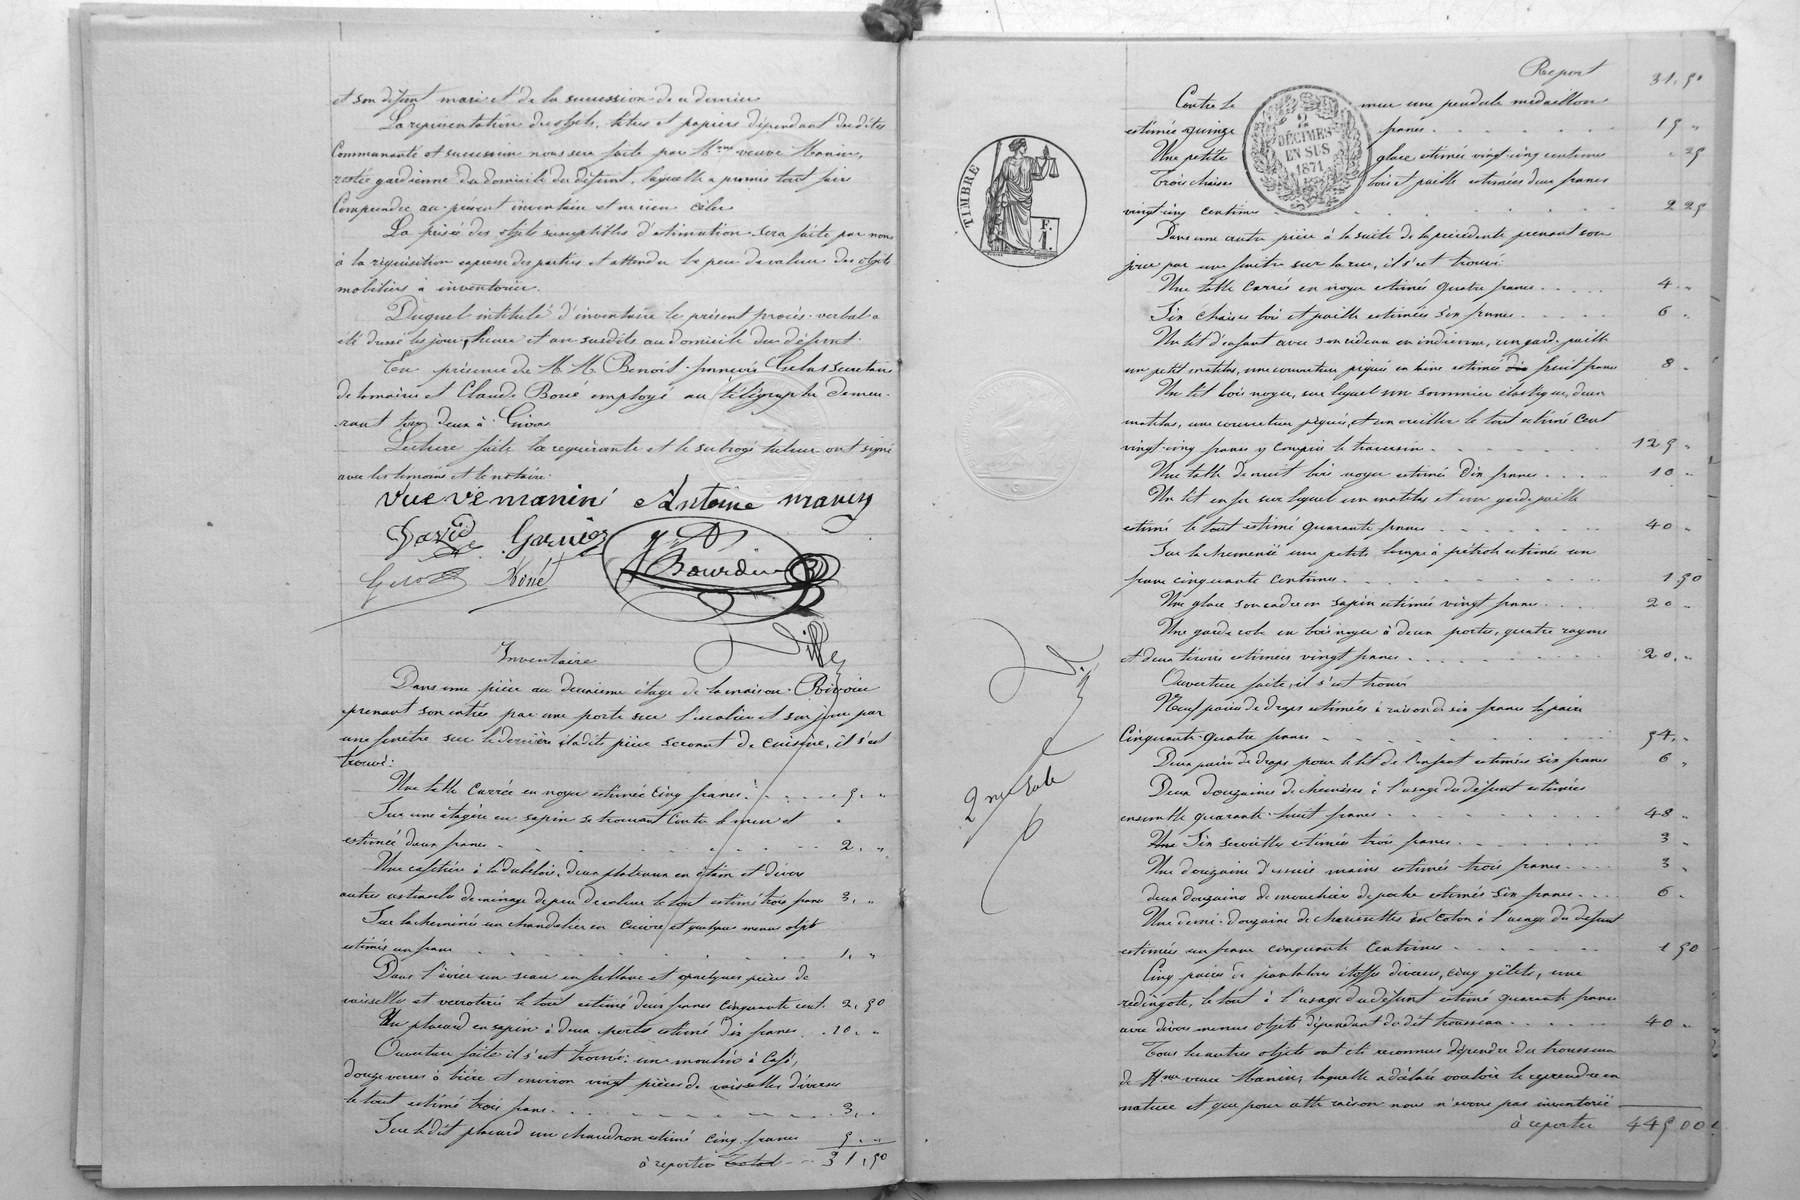 et son défunt mari et de la succession de ce dernier
La représentation des objets, titres et papiers dépendant des dites
Communauté et succession nous sera faite par Mme veuve Manin,
restée gardienne du domicile du défunt, laquelle a promis tout faire
Comprendre au présent inventaire et ne rien celer
La prisée des objets susceptibles d'estimation sera faite par nous
à la réquisition expresse des parties et attendu le peu de valeur des objets
mobiliers à inventorier.
Duquel intitulé d'inventaire le présent procès-verbal a
été dressé les jour, heure et an susdits au domicile du défunt.
En présence de M.M. Benoit-François Gelas secrétaire
de la mairie et Claude Boné employé au télégraphe demeu-
rant tous deux à Givors
Lecture faite la requérante et le subrogé tuteur ont signé
avec les témoins et le notaire.
Vve manin Antoine
David Garnier Bourdin
Boné
Inventaire
Dans une pièce au deuxième étage de la maison Rivoire
prenant son entrée par une porte sur l'escalier et son jour par
une fenêtre sur le derrière, la dite pièce servant de cuisine, il s'est
trouvé:
Une table carrée en noyer estimée cinq francs 5 "
Sur une étagère en sapin se trouvant contre le mur et
estimée deux francs 2 "
Une cafetière à la dubelloi, deux plateaux en étain et divers
autres ustensiles de ménage de peu de valeur le tout estimé trois francs 3, "
Sur la cheminée un chandelier en cuivre et quelques menus objets
estimés un franc 1, "
Dans l'évier un seau en ferblanc et quelques pièces de
vaisselles et verroterie le tout estimé deux francs cinquante cent. 2,50
Un placard en sapin à deux portes estimé dix francs 10 "
Ouverture faite il s'est trouvé: un moulin à café,
douze verres à bière et environ vingt pièces de vaisselles diverses
le tout estimé trois francs 3, "
Sur le dit placard un chaudron estimé cinq francs 5 "
à reporter Total 31,50
TIMBRE
F.
1.
2
DÉCIMES
EN SUS
1871
2me Rôle
Report 31,50
Contre le mur une pendule médaillon
estimée quinze francs 15 "
Une petite glace estimée vingt-cinq centimes " 25
Trois chaises bois et paille estimées deux francs
vingt-cinq centimes 2 25
Dans une autre pièce à la suite de la précédente prenant son
jour par une fenêtre sur la rue, il s'est trouvé:
Une table carrée en noyer estimée quatre francs 4 "
Six chaises bois et paille estimées six francs 6 "
Un lit d'enfant avec son rideau en indienne, un garde paille
un petit matelas, une couverture piquée en laine estimé dix huit francs 8 "
Un lit bois noyer, sur lequel un sommier élastique, deux
matelas, une couverture piquée, et un oreiller le tout estimé cent
vingt-cinq francs y compris le traversin 125 "
Une table de nuit bois noyer estimée dix francs 10 "
Un lit en fer sur lequel un matelas et un garde paille
estimé le tout estimé quarante francs 40 "
Sur la cheminée une petite lampe à pétrole estimée un
franc cinquante centimes 1 50
Une glace son cadre en sapin estimée vingt francs 20 "
Une garde robe en bois noyer à deux portes, quatre rayons
et deux tiroirs estimée vingt francs 20, "
Ouverture faite, il s'est trouvé
Neuf paires de draps estimées à raison de six francs la paire
Cinquante-quatre francs 54, "
Deux paires de draps pour le lit de l'enfant estimées six francs 6 "
Deux douzaines de chemises à l'usage du défunt estimées
ensemble quarante-huit francs 48 "
Une Six serviettes estimées trois francs 3 "
Une douzaine d'essuie mains estimés trois francs 3 "
deux douzaines de mouchoirs de poche estimés six francs 6 "
Une demi-douzaine de chaussettes en coton à l'usage du défunt
estimées un franc cinquante centimes 1 50
Cinq paires de pantalons étoffes diverses, cinq gilets, une
redingote, le tout à l'usage du défunt estimé quarante francs
avec divers menus objets dépendant du dit trousseau 40 "
Tous les autres objets ont été reconnus dépendre du trousseau
de Mme veuve Manin, laquelle a déclaré vouloir le reprendre en
nature et que pour cette raison nous n'avons pas inventorié
à reporter 445 00